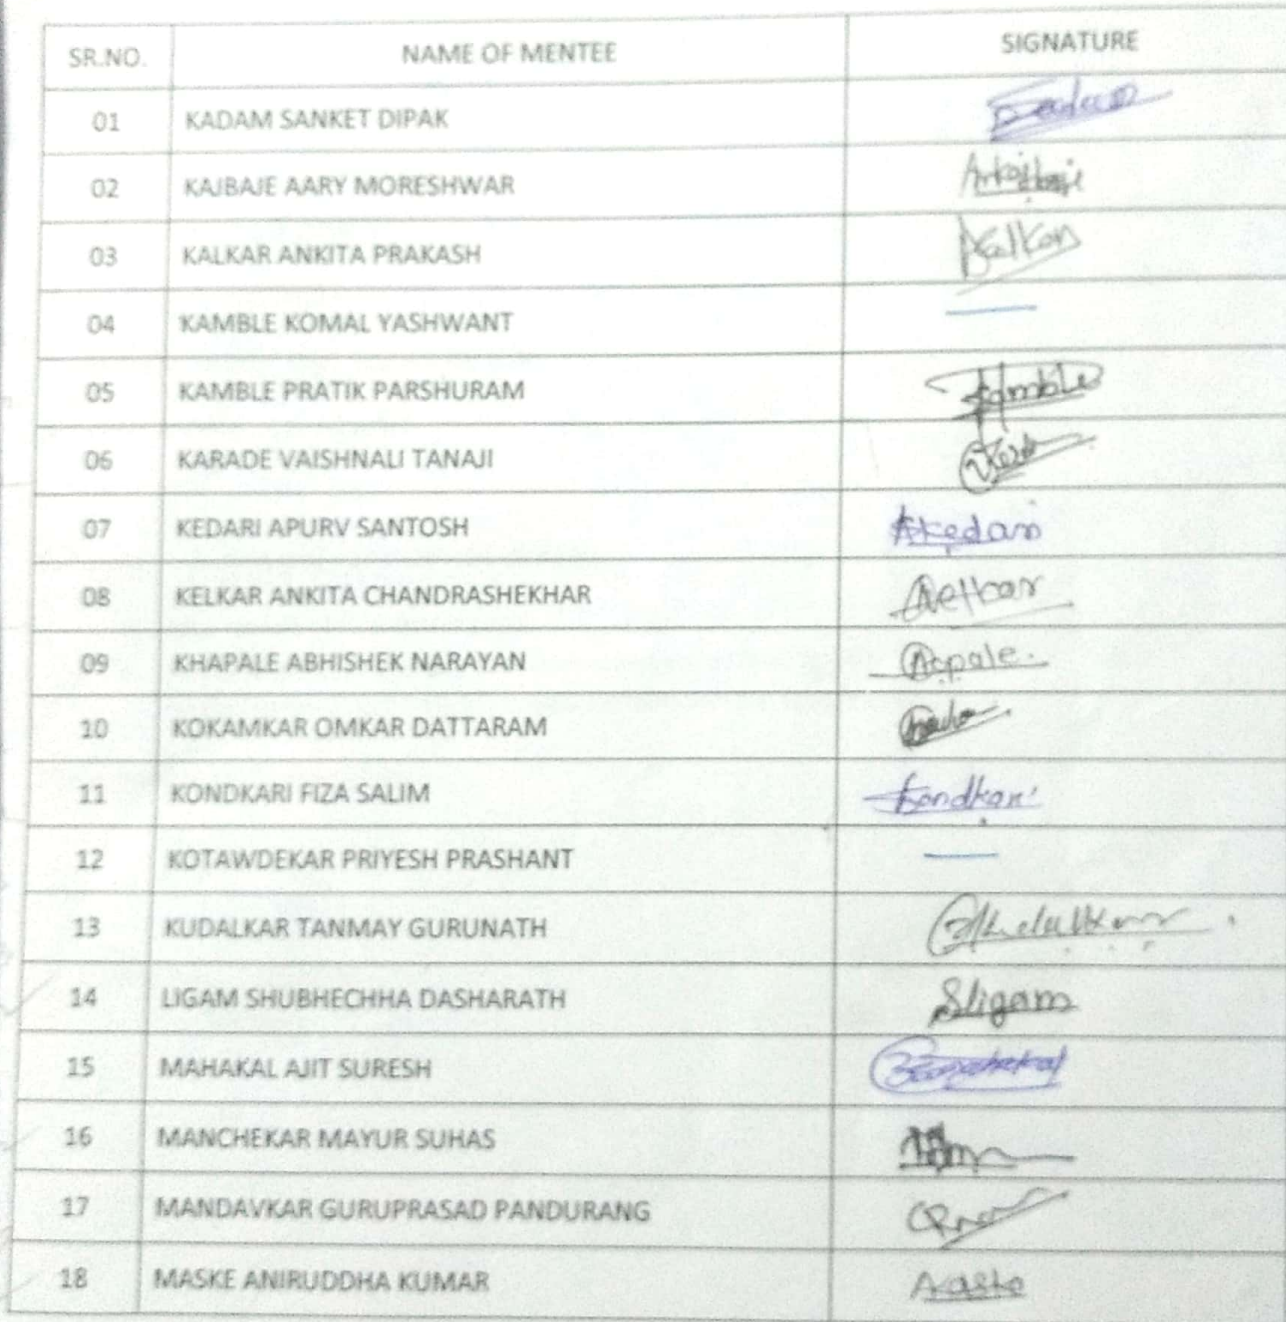 SR.NO. NAME OF MENTEE SIGNATURE
01 KADAM SANKET DIPAK
02 KAJBAJE AARY MORESHWAR
03 KALKAR ANKITA PRAKASH
04 KAMBLE KOMAL YASHWANT —
05 KAMBLE PRATIK PARSHURAM Kamble
06 KARADE VAISHNALI TANAJI
07 KEDARI APURV SANTOSH AKedari
08 KELKAR ANKITA CHANDRASHEKHAR
09 KHAPALE ABHISHEK NARAYAN
10 KOKAMKAR OMKAR DATTARAM
11 KONDKARI FIZA SALIM Kondkari
12 KOTAWDEKAR PRIYESH PRASHANT —
13 KUDALKAR TANMAY GURUNATH
14 LIGAM SHUBHECHHA DASHARATH Sligam
15 MAHAKAL AJIT SURESH
16 MANCHEKAR MAYUR SUHAS
17 MANDAVKAR GURUPRASAD PANDURANG
18 MASKE ANIRUDDHA KUMAR